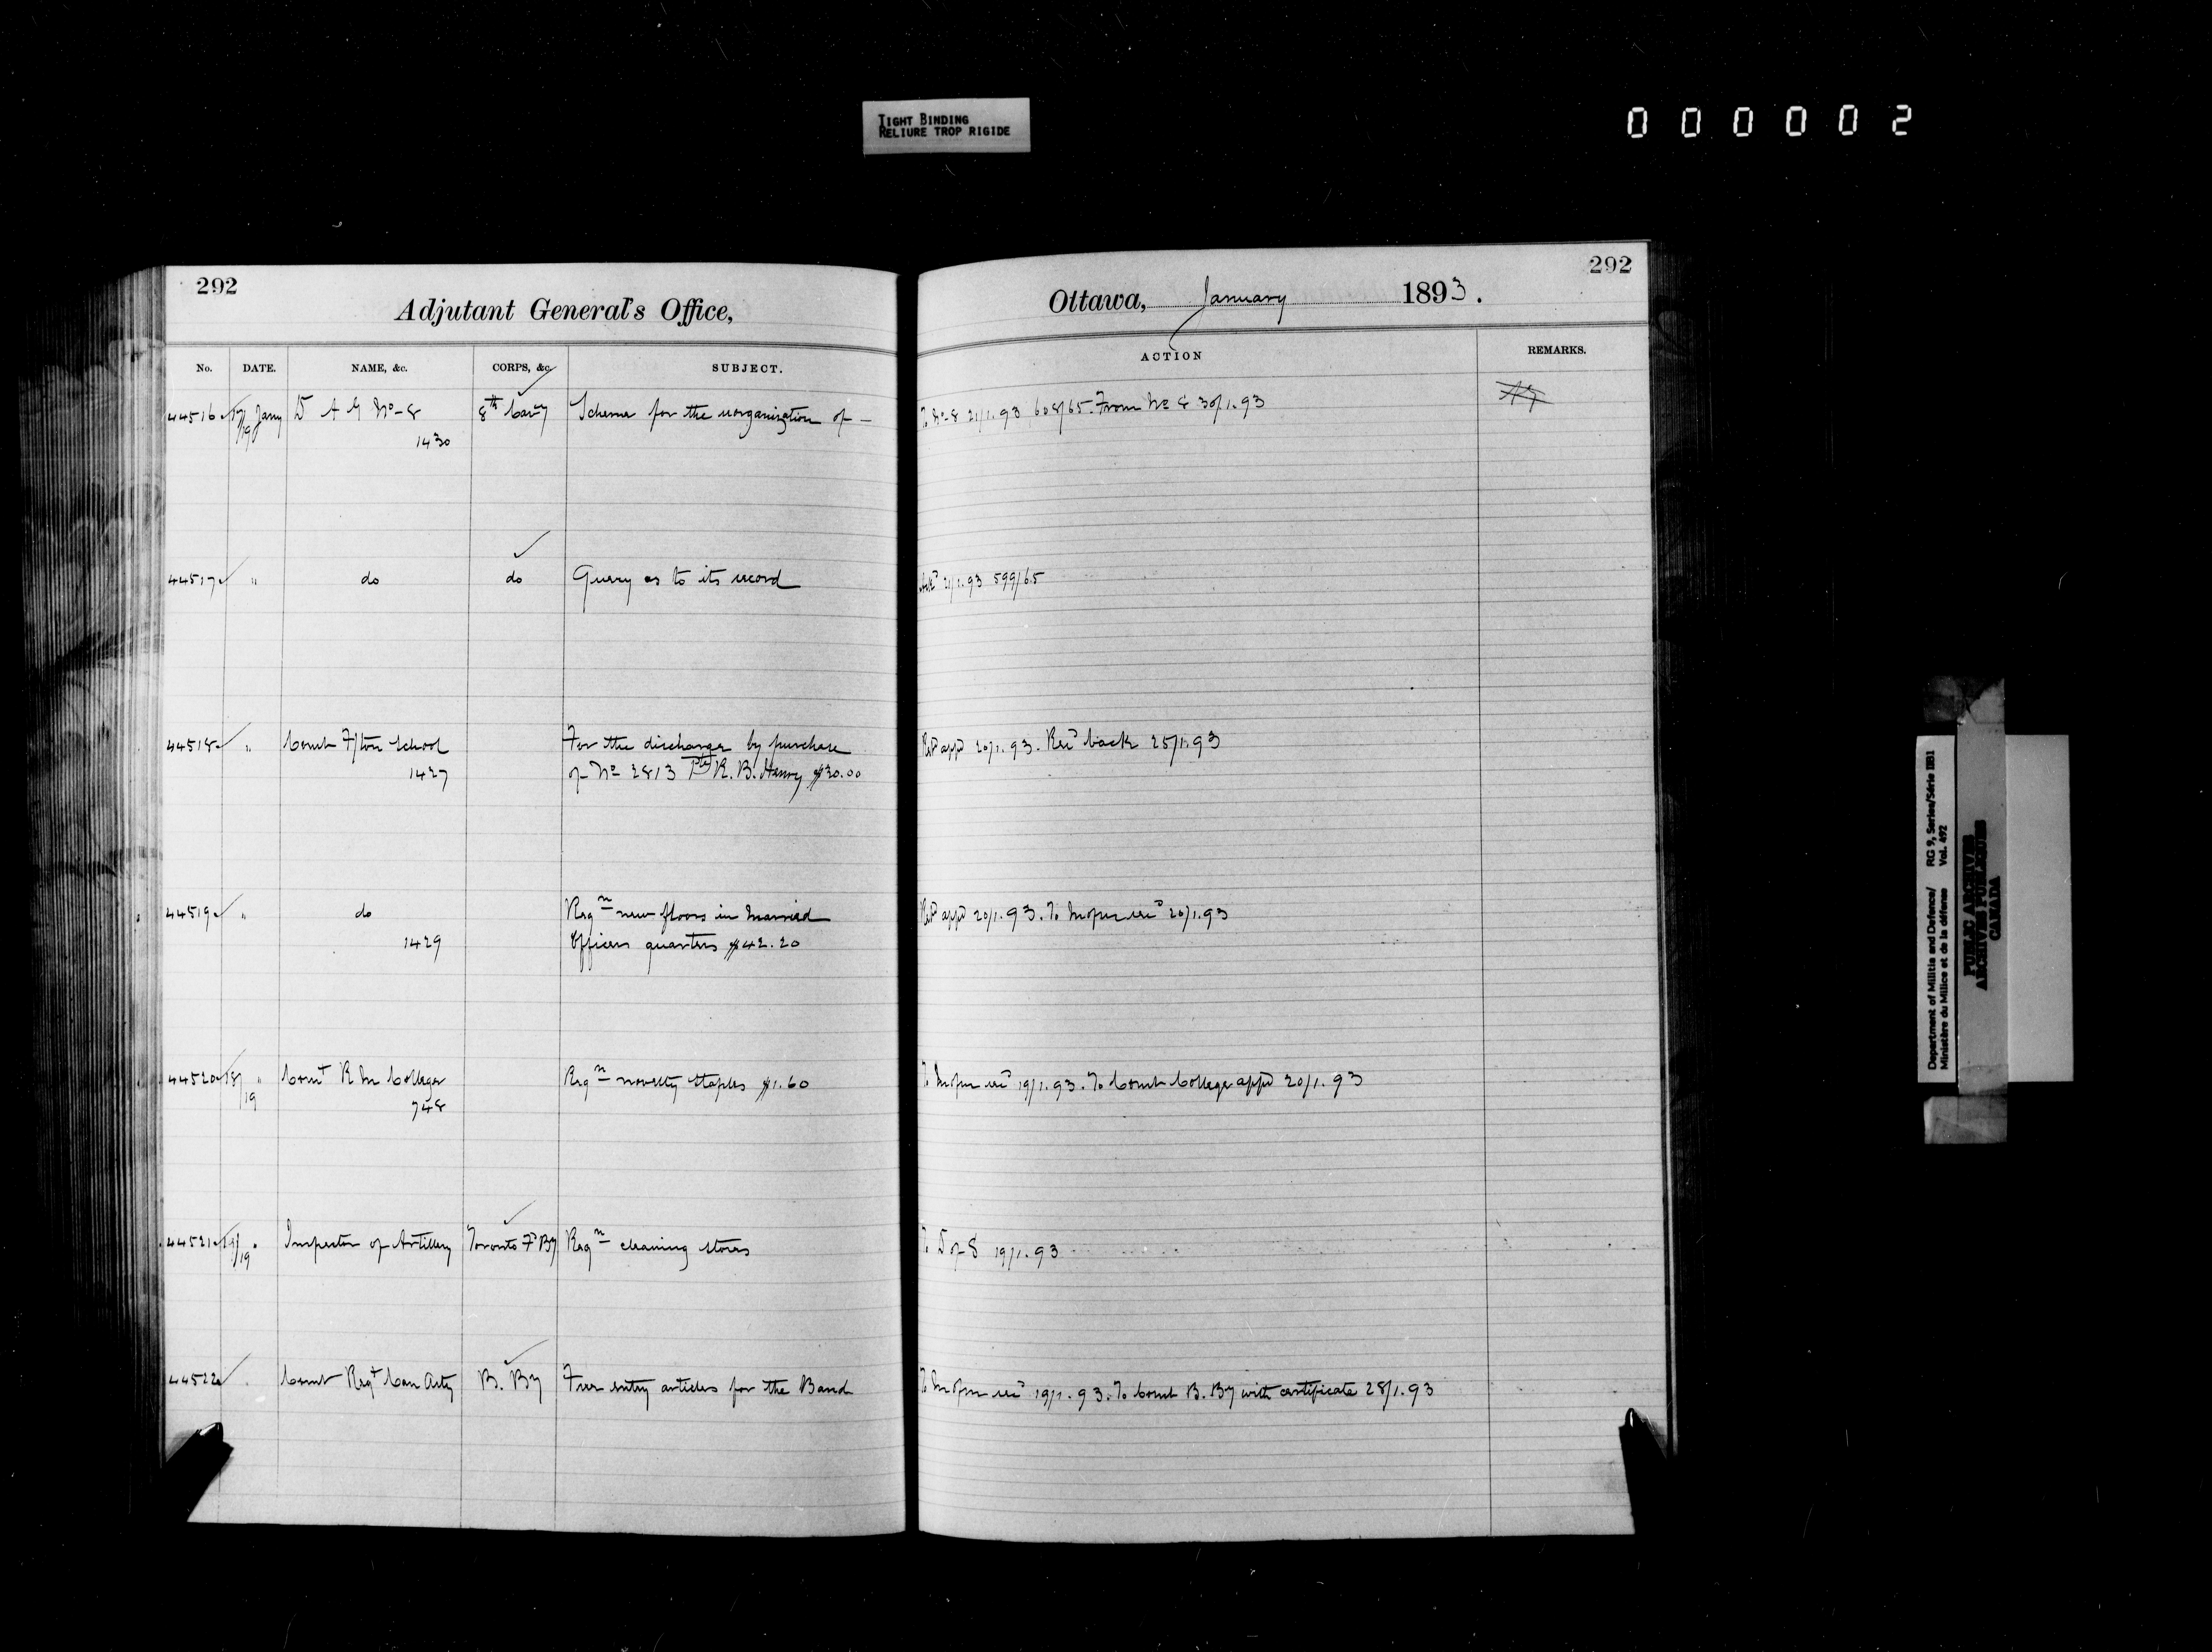 TIGHT BINDING
RELIURE TROP RIGIDE
000002
292
Adjutant General's Office,
No. DATE. NAME, &c. CORPS, &c. SUBJECT.
44516 17/19 Jany D A G No 8 8th Cavy Scheme for the reorganization of –
1430
44517 " do do Query as to its record
44518 " Comt F/ton School For the discharge by purchase
1427 of No 2813 Pte R. B. Henry $30.00
44519 " do Reqn new floors in Married
1429 Officers quarters $42.20
44520 18/19 " Comt R M College Reqn novelty staples $1.60
748
44521 19 Inspector of Artillery Toronto Fd By Reqn cleaning stores
44522 Comt Regt Can Arty B. By Free entry articles for the Band
292
Ottawa, January 1893.
ACTION REMARKS.
To No 8 21/1.93 608/65. From No 8 30/1.93
21/1.93 599/65
appd 20/1.93. Recd back 25/1.93
appd 20/1.93. To 20/1.93
To 19/1.93. To Comt College appd 20/1.93
To D of S 19/1.93
To 19/1.93. To Comt B. By with certificate 28/1.93
Department of Militia and Defence/ RG 9, Series/Série IIB1
Ministère du Milice et de la défense Vol. 492
PUBLIC ARCHIVES
ARCHIVES PUBLIQUES
CANADA